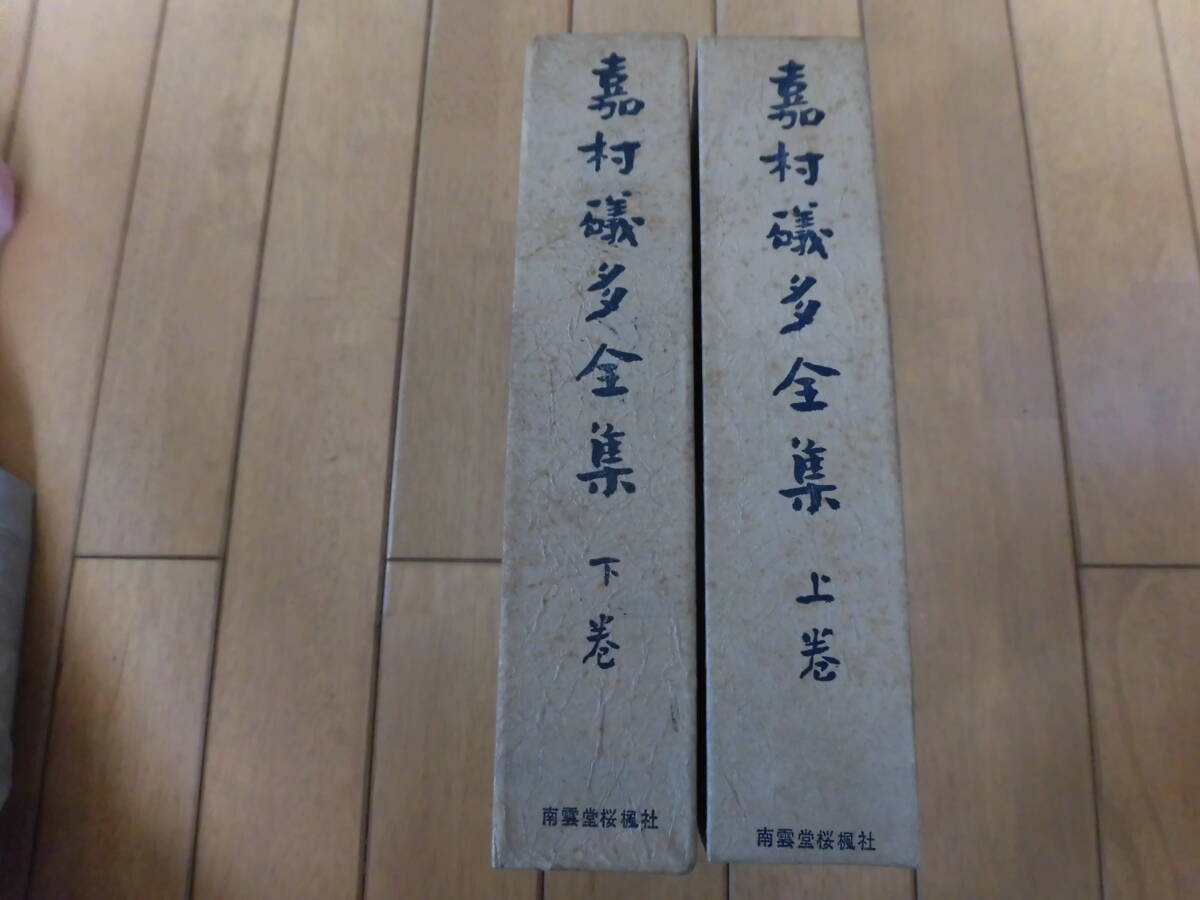 嘉村礒多全集 上巻
南雲堂桜楓社
嘉村礒多全集 下巻
南雲堂桜楓社